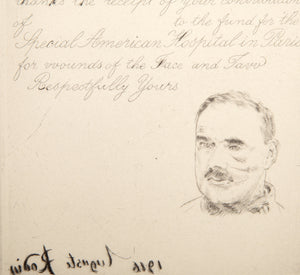 thanks the receipt of your contribution
of to the fund for the
Special American Hospital in Paris
for wounds of the Face and Jaw
Respectfully Yours
1916 Auguste Rodin